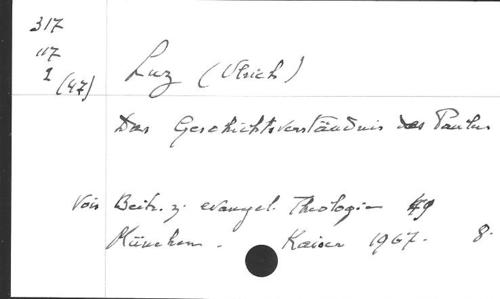 317
117
1
(47)
Luz (Ulrich)
Das Geschichtsverständnis des Paulus
Vois Beitr. z. evangel. Theologie 49
München. Kaiser 1967. 8.